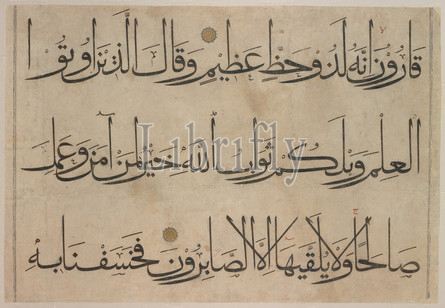 قارون إنه لذو حظ عظيم وقال الذين أوتوا
العلم ويلكم ثواب الله خير لمن آمن وعمل
صالحا ولا يلقيها إلا الصابرون فخسفنا به
Librifly